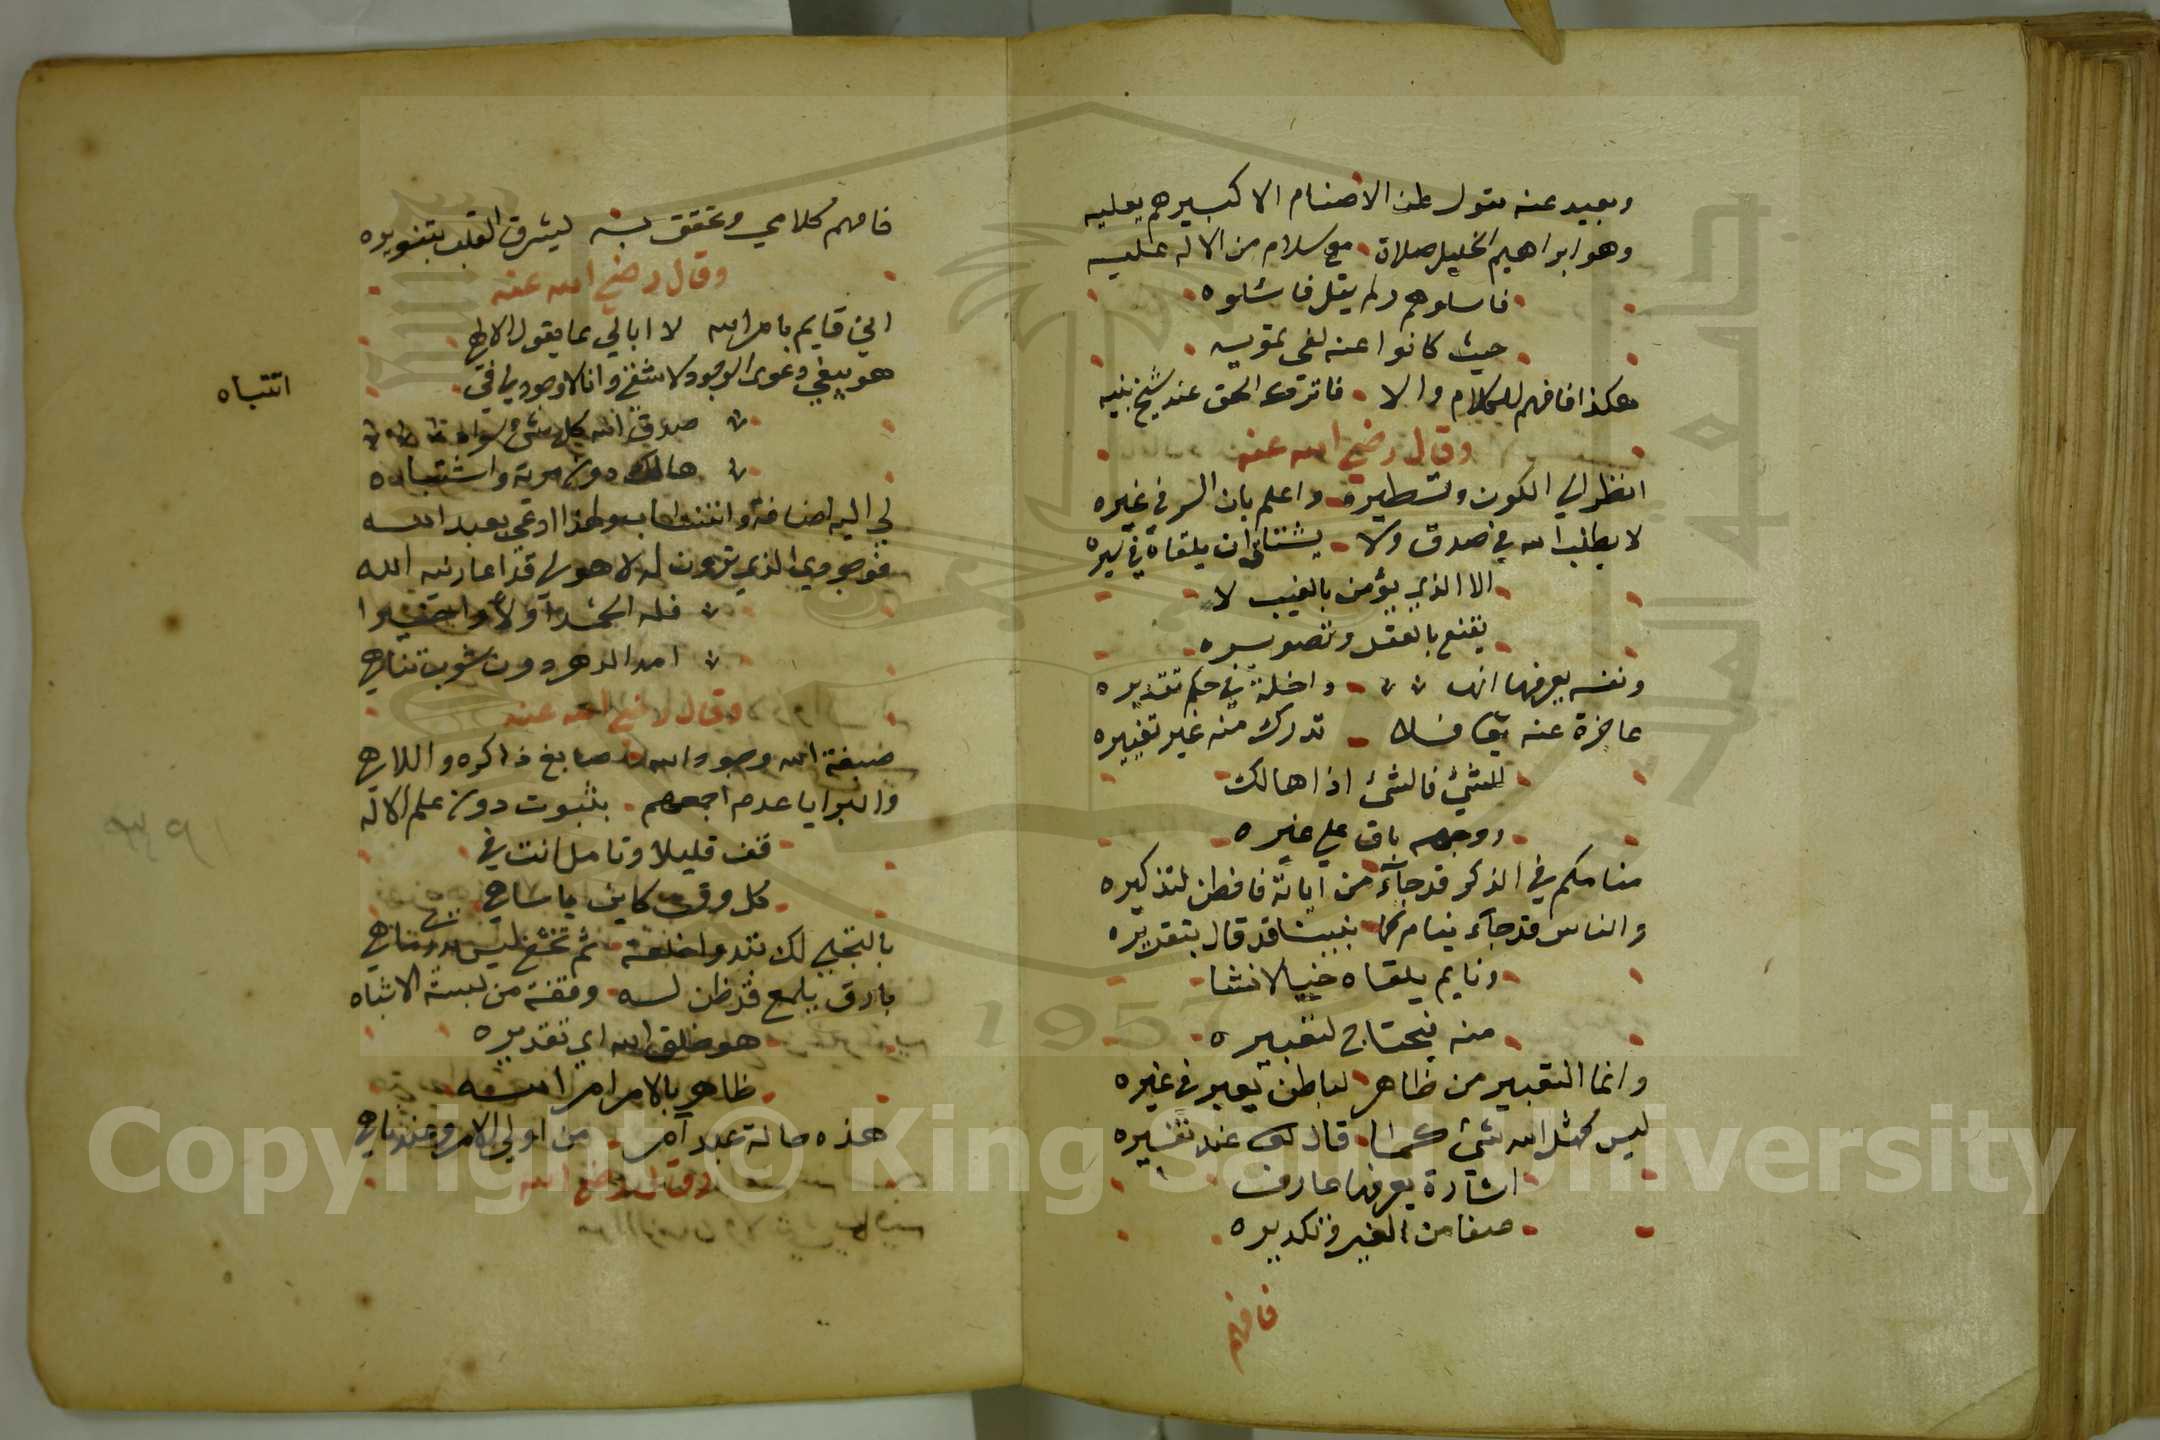 وبعيد عنه قول عن الاصنام الا كبيرهم يعليه
وهو ابراهيم الخليل صلاة مع سلام من الاله عليه
فاسلوهم ولم يقل فاسئلوه
حيث كانوا عنه لفي تمويه
هكذا فافهم للكلام والا فاترك الحق عند شيخ بنيه
وقال رضي الله عنه
انظر الي الكون وتسطيره واعلم بان السر في غيره
لا يطلب الله في صدق ولا يشتاق ان يلقاه في سيره
الا الذي يؤمن بالغيب لا
يقنع بالعقل وتصويره
ونفسه يعرفها انها داخلة في حكم تقديره
عاجزة عنه بها فلا تدرك منه غير تغييره
للشيئ فالشيئ اذا هالك
ووجهه باق علي غيره
منامكم في الذكر قد جاء من اياته فافطن لتذكيره
والناس قد جاء نيام كما نبينا قد قال بتقديره
ونايم يلقاه خيالا نشا
منه فيحتاج لتعبيره
وانما التعبير من ظاهر لباطن تعبر في غيره
ليس كمثل الله شيئ كما قال لنا عند تفسيره
اشارة يعرفها عارف
صفا من الغير وتكديره
فافهم
فافهم كلامي وتحقق به ليشرق القلب بتنويره
وقال رضي الله عنه
انني قايم بامر الله لا ابالي بما يقول اللاهي
هو يبغي دعوي الوجود لاشفي وانا لا وجود لي في
اتتباه
صدق الله كل شيء سواه
هالك دون مرية واشتباه
لي اليه اضافة وانتساب ولهذا ادعي بعبد الله
فوجودي الذي ترون له لا هو لي قد اعارنيه الله
فله الحمد اولا واخيرا
امد الدهر دون شوب تناهي
وقال رضي الله عنه
صبغة الله وجود الله صابغ ذاكره واللاهي
والبرايا عدم اجمعهم بثبوت دون علم الاله
قف قليلا وتامل انت في
كل وقت كاين يا ساهي
بالتجلي لك تبدو خلعة ثم تخفي ليس بدر متناهي
بارق يلمع قد ظن له وقفة من لبسة الاشباه
هو خلق الله اي تقديره
ظاهر بالامر امر الله
هذه حالة عبد آمر من اولي الامر وعبد ناهي
وقال رضي الله
Copyright © King Saud University
1957